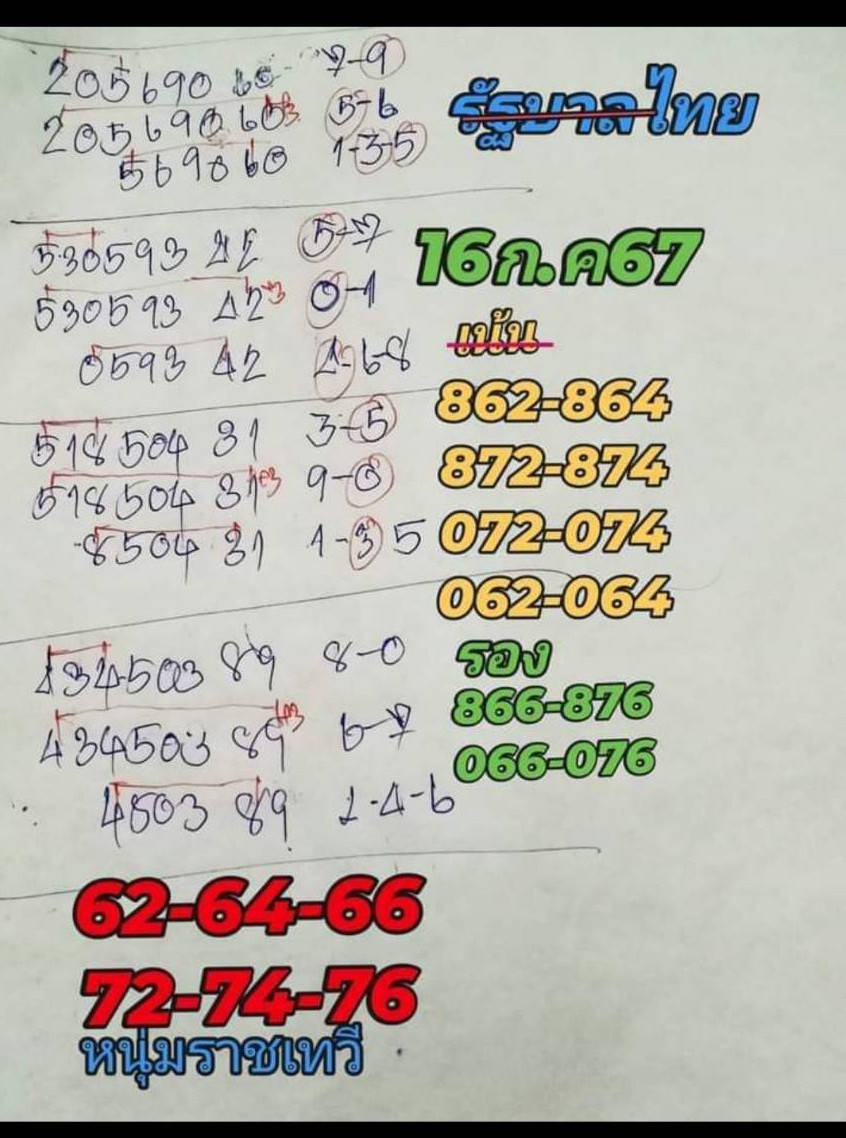 205690 60 7-9
205690 60 5-6
569060 1-3-5
รัฐบาลไทย
530593 42 5-7
16ก.ค67
530593 42 0-1
เน้น
0593 42 4-6-8
862-864
518504 31 3-5
872-874
518504 31 9-0
072-074
8504 31 1-3 5
062-064
434503 89 8-0
รอง
866-876
434503 89 6-7
066-076
4503 89 2-4-6
62-64-66
72-74-76
หนุ่มราชเทวี